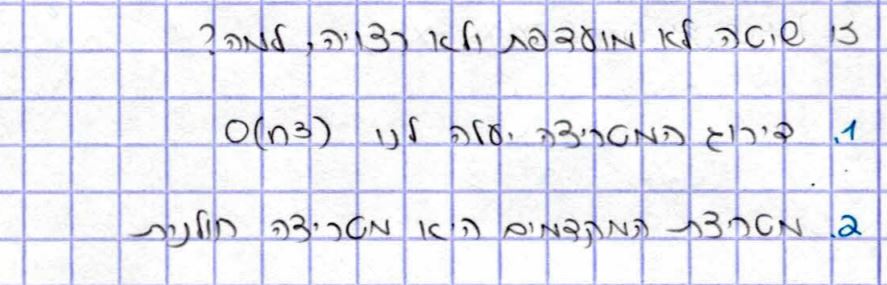 זו שיטה לא מועדפת ולא רצויה, למה?
1. דירוג המטריצה יעלה לנו O(n3)
2. מטריצת המקדמים היא מטריצה חולנית